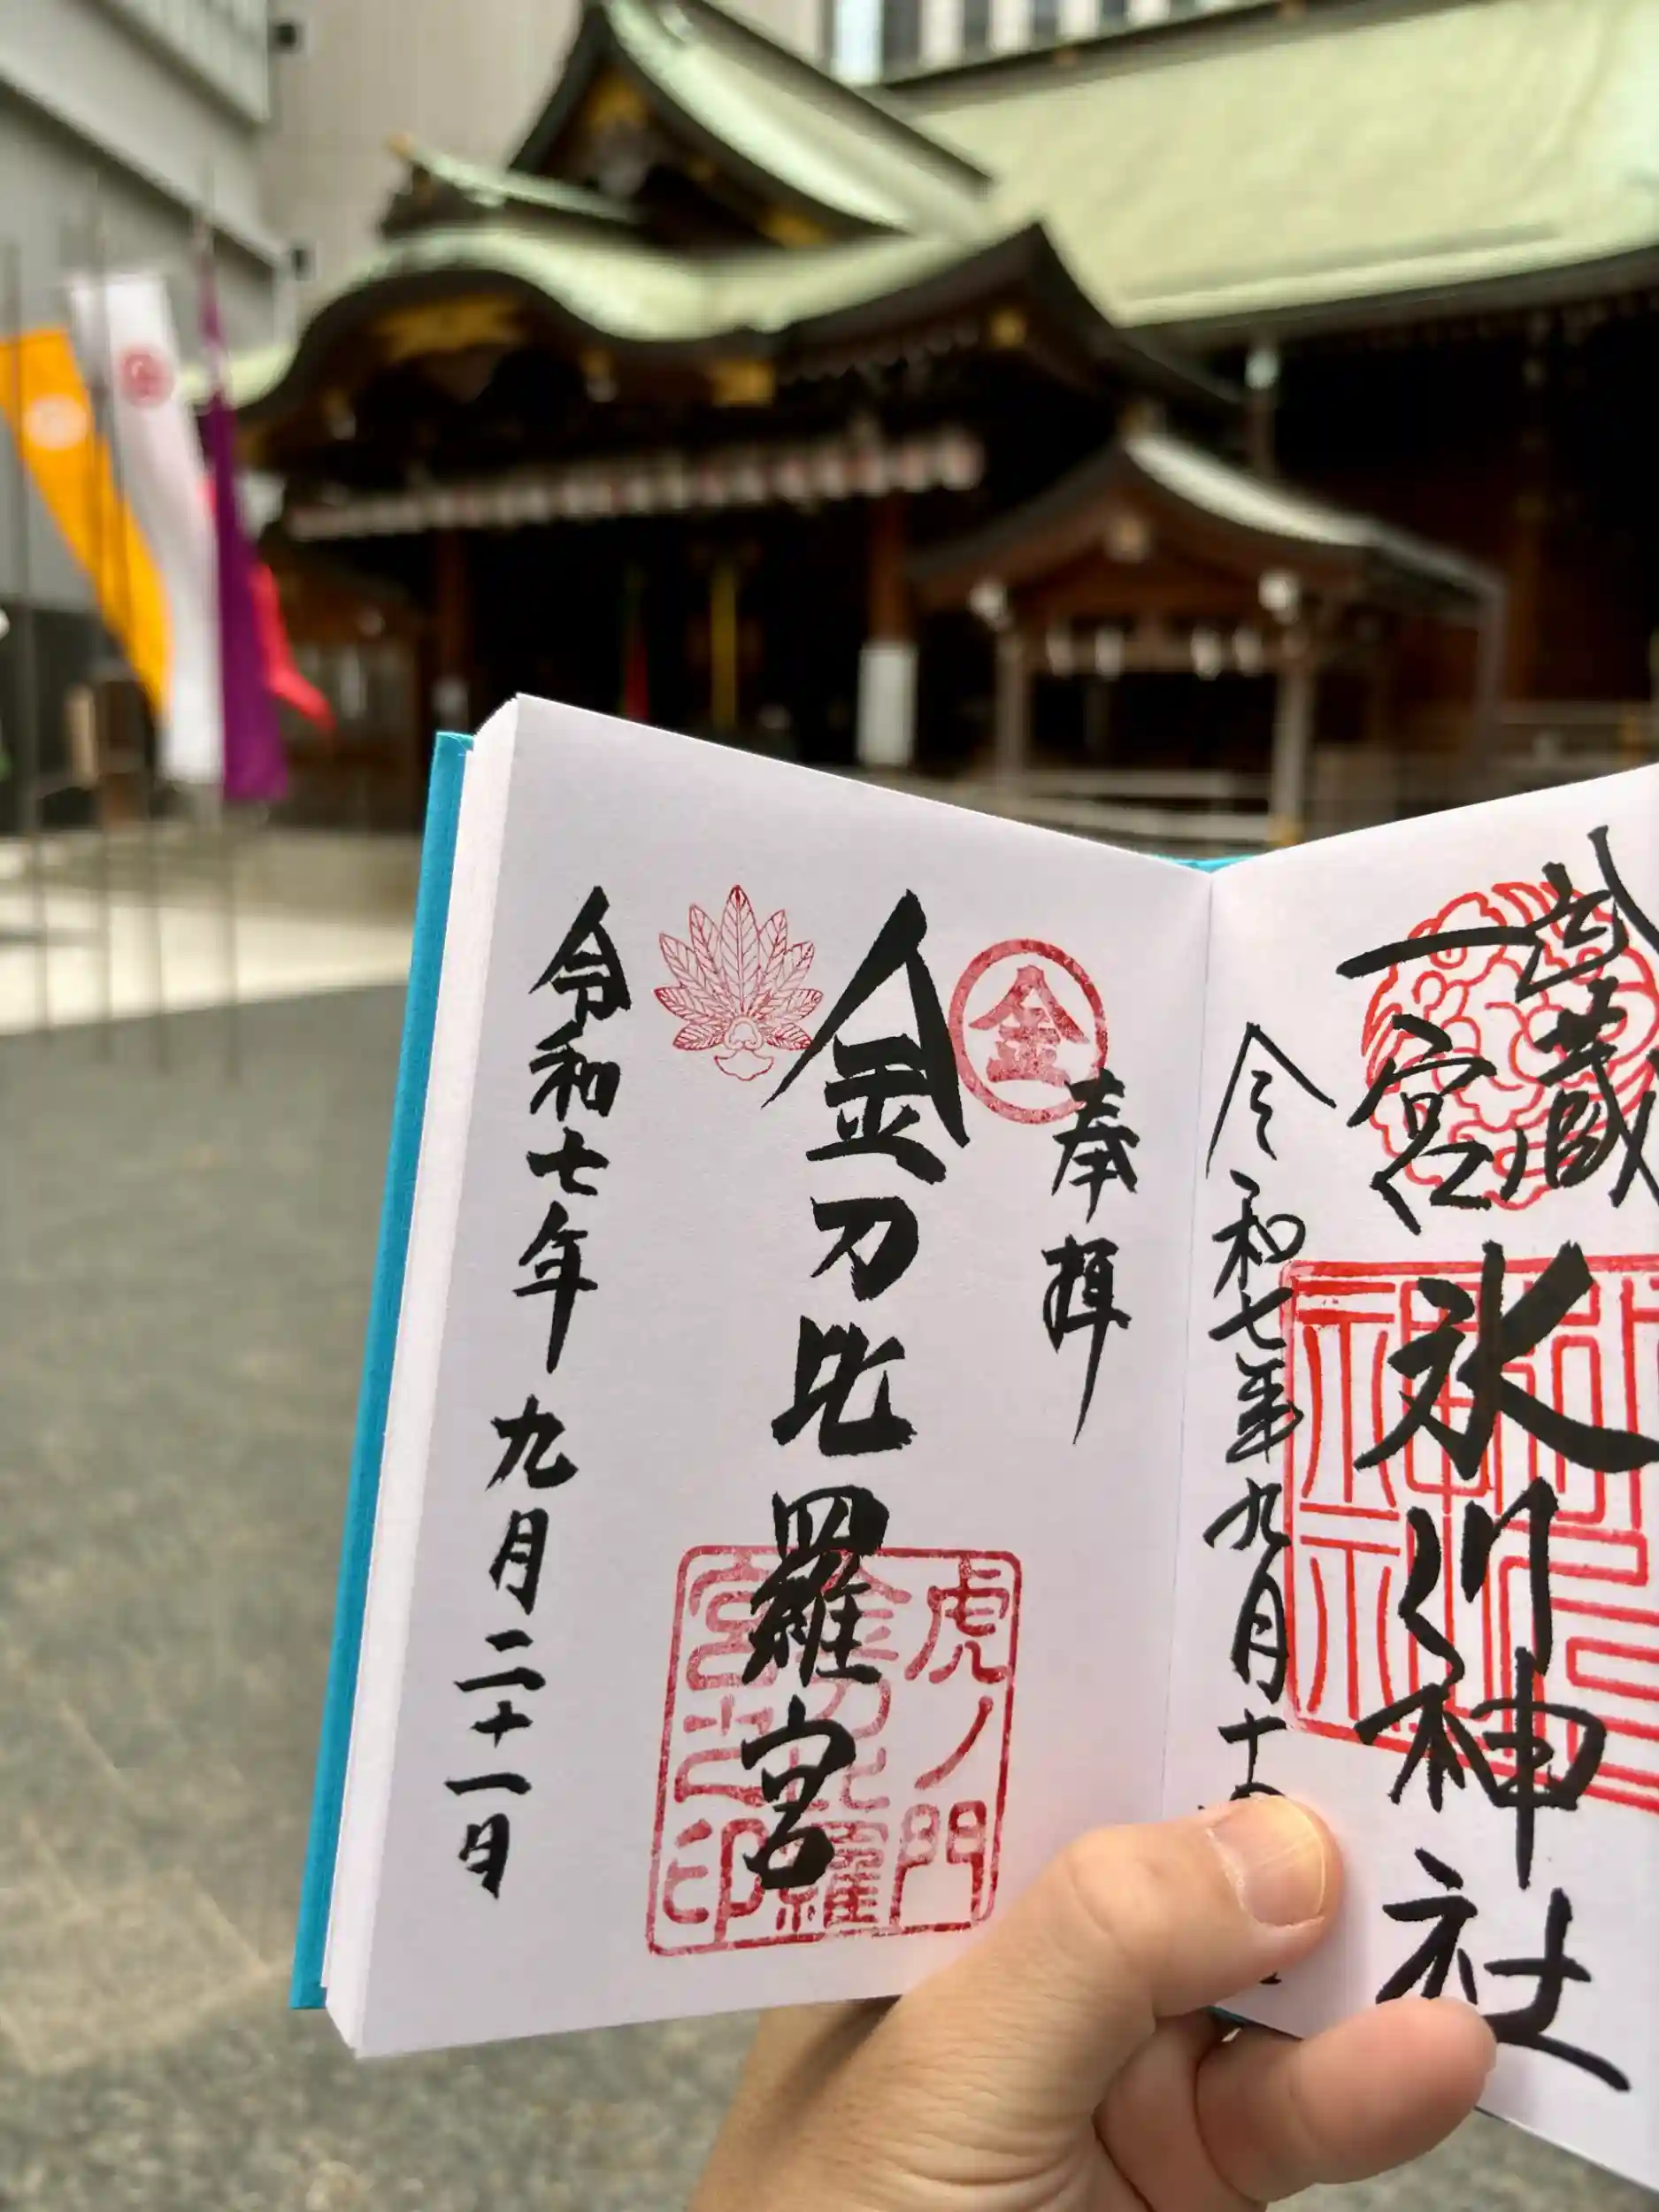 武蔵
一宮
氷川神社
令和七年九月十
奉拝
金
金刀比羅宮
虎ノ門
金刀比羅
宮之印
令和七年九月二十一日